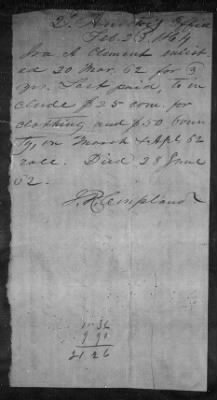 2d Auditor's Office
Feb. 1864
Ira A Clement enlist
ed 20 Mar. 62 for 3
yrs. Last paid, to in
clude $25 com. for
clothing and $50 boun
ty, on March & Apl 62
roll. Died 28 June
62.
9 90
21 26